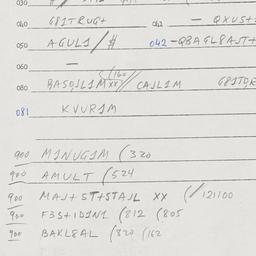 030
040 G81TRUG+ 042 — QXUS+
050 AGUL1/# 042-QBAGL8AJT+
060 —
080 CAJL1M G81TQR
081 KVUR1M
900 M1NUG1M (320
900 AMULT (524
900 MAJ+ ST+STAJL XX (/121100
900 F3S+1D1N1 (812 (805
900 BAKL8AL (320 (162